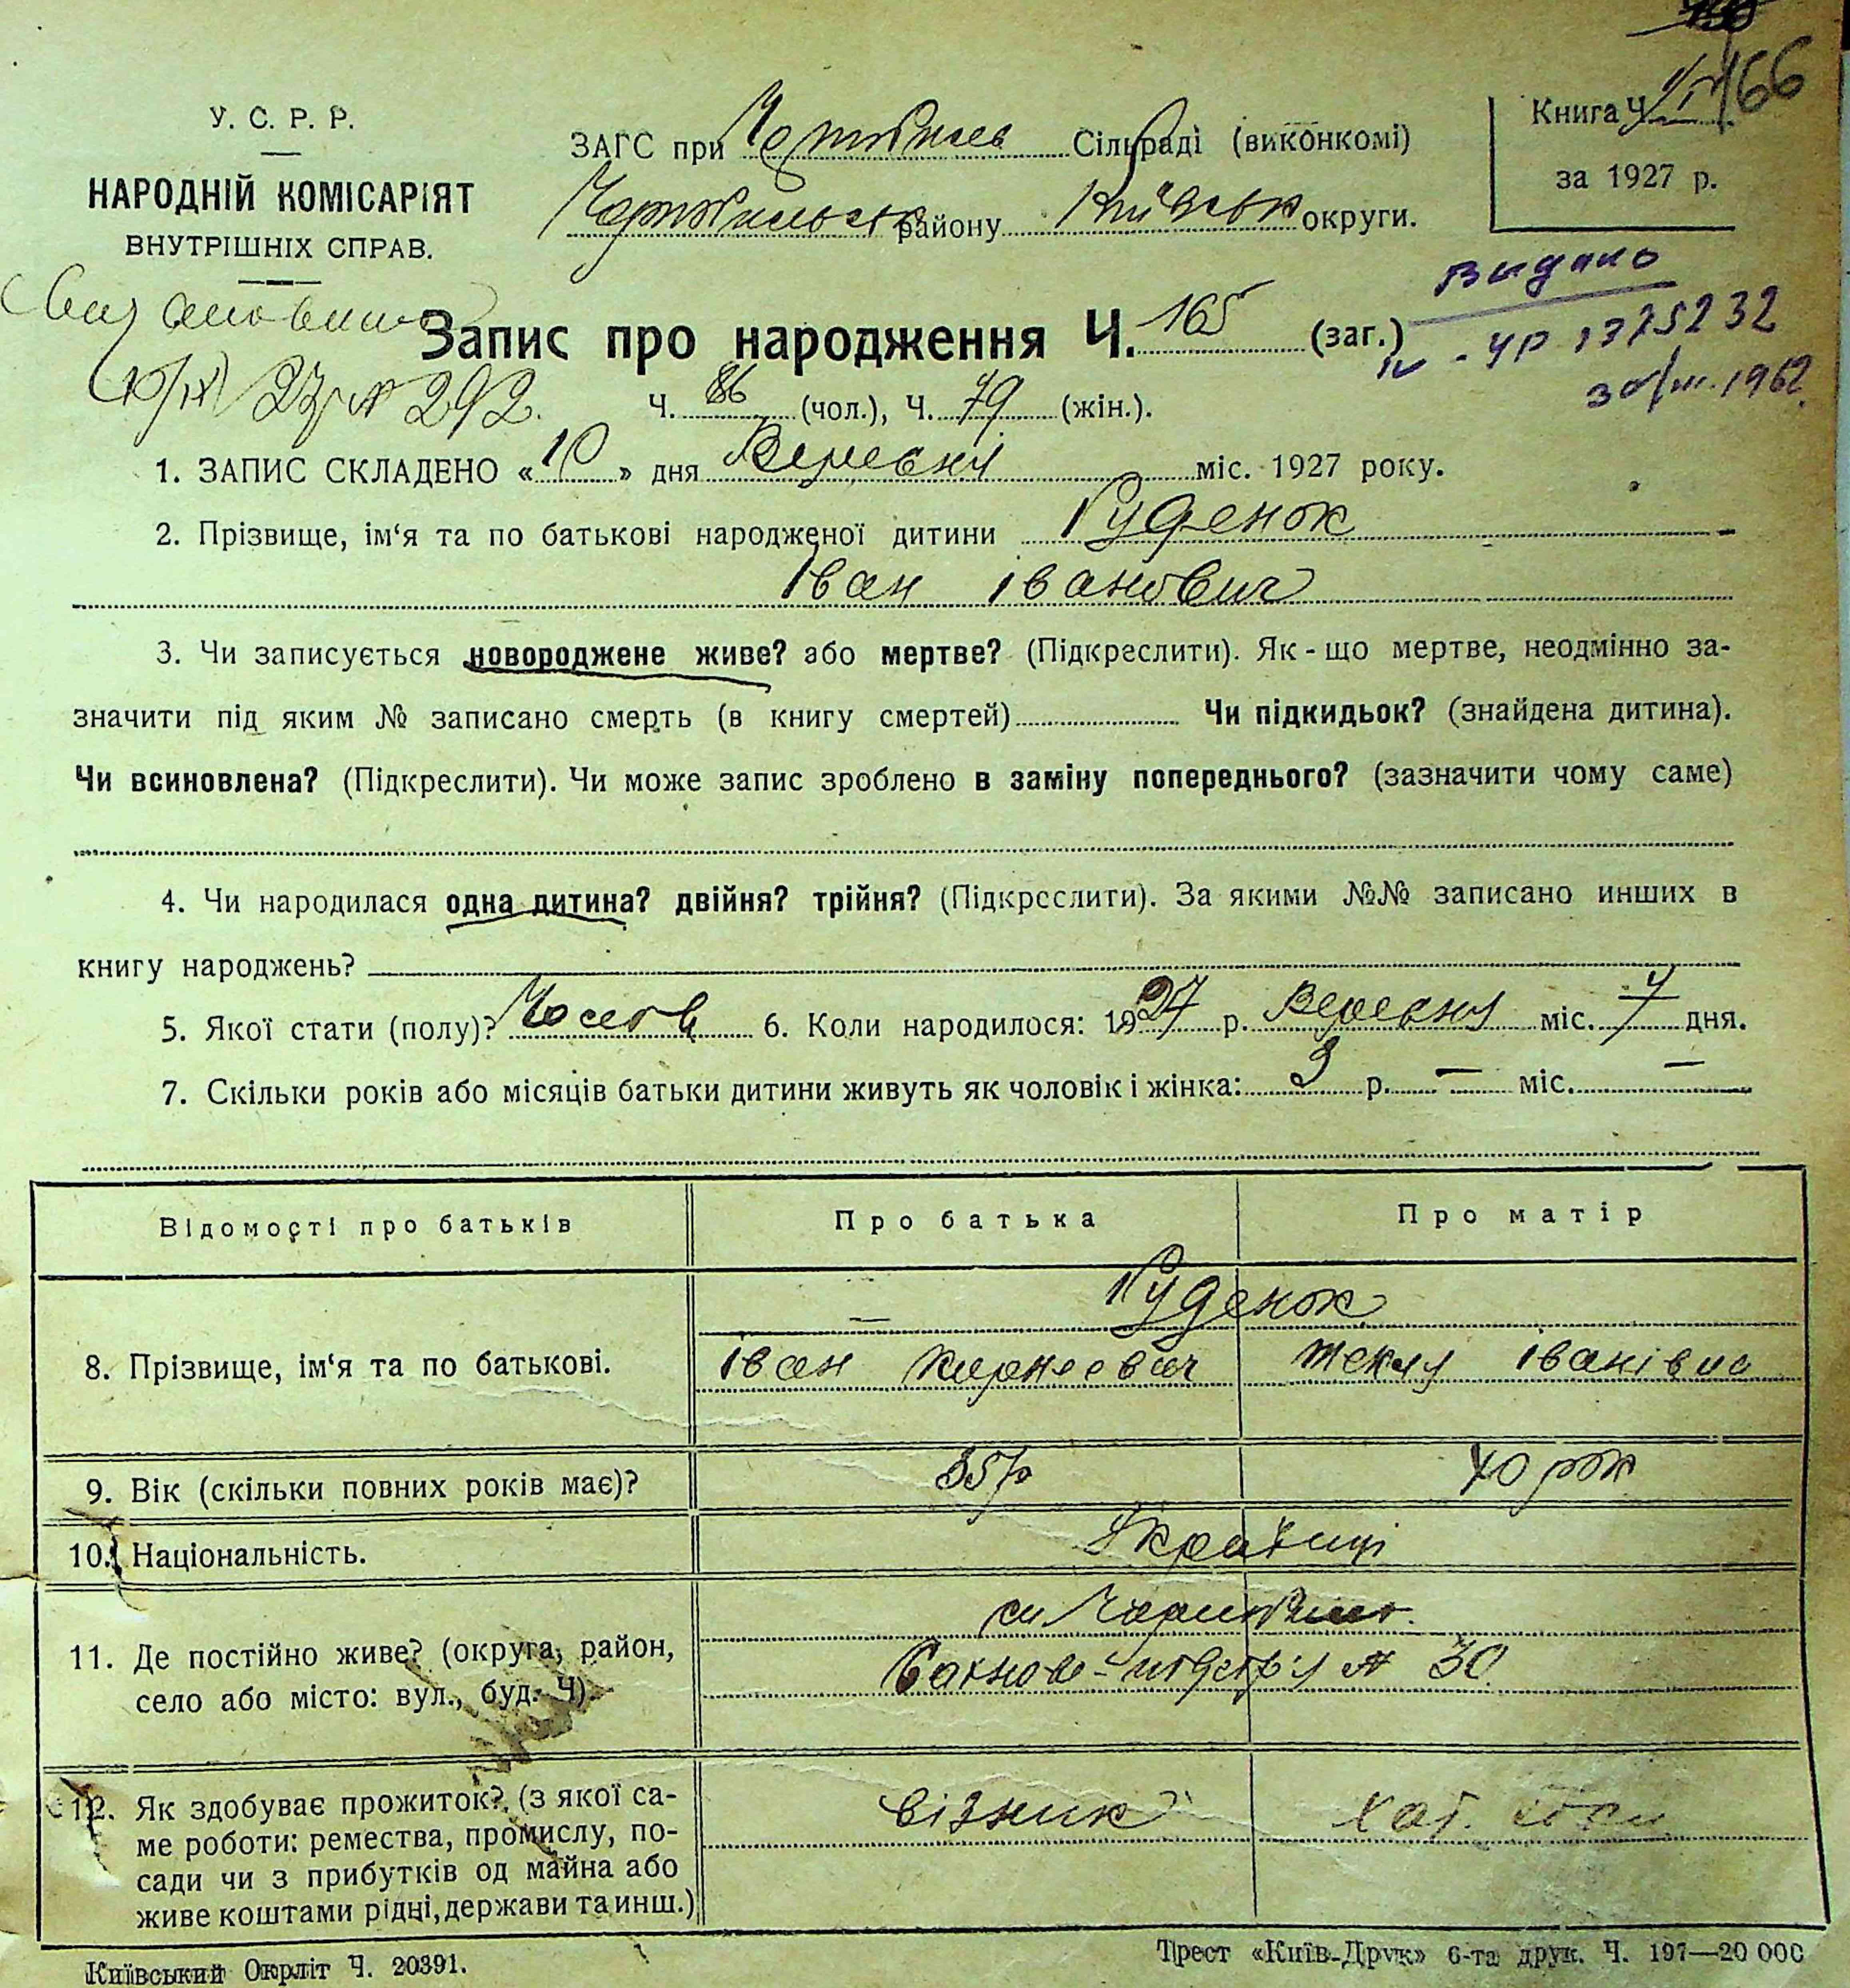 У. С. Р. Р.
НАРОДНІЙ КОМІСАРІЯТ
ВНУТРІШНІХ СПРАВ.
ЗАГС при Сільраді (виконкомі)
району Київськ округи.
Книга Ч. 166
за 1927 р.
Видано
IV-УР 1375232
30/III.1962
10/IX 27 № 292.
Запис про народження Ч. 165 (заг.)
Ч. 86 (чол.), Ч. 79 (жін.).
1. ЗАПИС СКЛАДЕНО «10» дня Вересня міс. 1927 року.
2. Прізвище, ім‘я та по батькові народженої дитини Руденок
Іван Іванович
3. Чи записується новороджене живе? або мертве? (Підкреслити). Як-що мертве, неодмінно за-
значити під яким № записано смерть (в книгу смертей) Чи підкидьок? (знайдена дитина).
Чи всиновлена? (Підкреслити). Чи може запис зроблено в заміну попереднього? (зазначити чому саме)
4. Чи народилася одна дитина? двійня? трійня? (Підкреслити). За якими №№ записано инших в
книгу народжень?
5. Якої стати (полу)? 6. Коли народилося: 1927 р. Вересня міс. 7 дня.
7. Скільки років або місяців батьки дитини живуть як чоловік і жінка: 3 р. — міс. —
Відомості про батьків Про батька Про матір
Руденок
8. Прізвище, ім‘я та по батькові. Іван Корнеевич Текля Іванівна
9. Вік (скільки повних років має)? 35 р 40 рок
10. Національність. Українці
11. Де постійно живе? (округа, район,
село або місто: вул., буд. Ч). № 30
12. Як здобуває прожиток? (з якої са-
ме роботи: ремества, промислу, по-
сади чи з прибутків од майна або
живе коштами рідні, держави та инш.)
візник хат.
Київський Окрліт Ч. 20391.
Трест «Київ-Друк» 6-та друк. Ч. 197—20 000